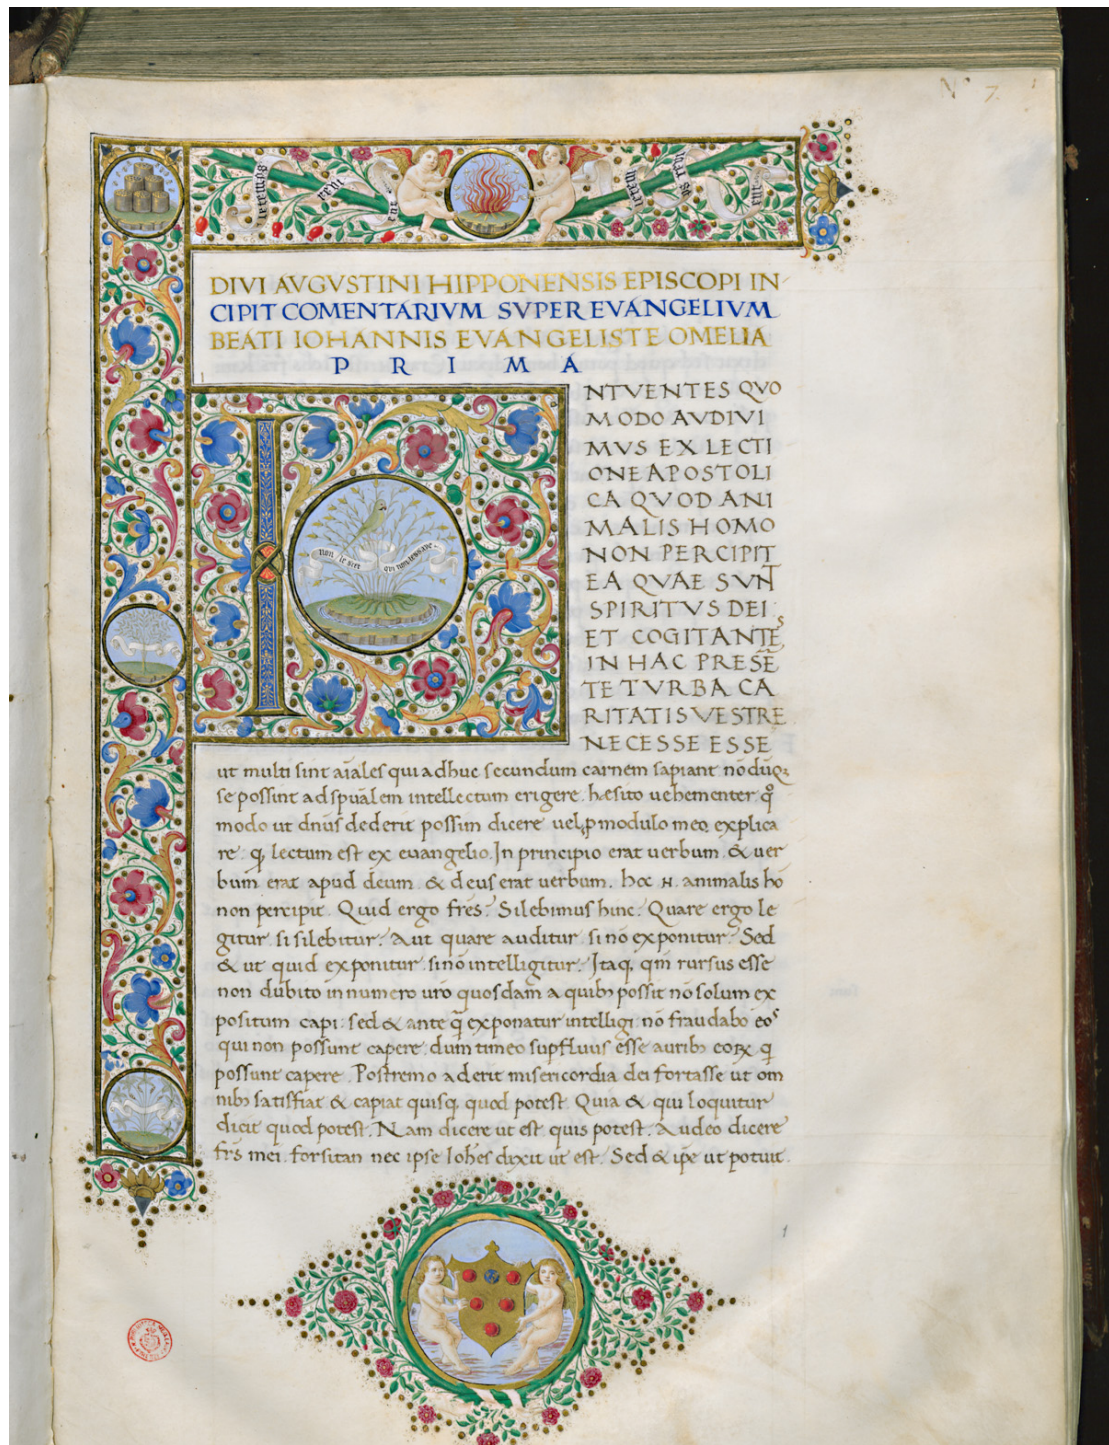 Nº 7
DIVI AVGVSTINI HIPPONENSIS EPISCOPI IN-
CIPIT COMENTARIVM SVPER EVANGELIVM
BEATI IOHANNIS EVANGELISTE OMELIA
PRIMA
INTVENTES QVO
MODO AVDIVI
MVS EX LECTI
ONE APOSTOLI
CA QVOD ANI
MALIS HOMO
NON PERCIPIT
EA QVAE SVNT
SPIRITVS DEI
ET COGITANTES
IN HAC PRESẼ
TE TVRBA CA
RITATIS VESTRE
NECESSE ESSE
non le siet qui non lessaye
ut multi sint aĩales qui adhuc secundum carnem sapiant nõdũq3
se possint ad spũalem intellectum erigere. hęsito uehementer qº
modo ut dñus dederit possim dicere uel ꝑ modulo meo explica
re. q̃ lectum est ex euangelio. In principio erat uerbum. & uer
bum erat apud deum. & deus erat uerbum. hoc .n. animalis hõ
non percipit. Quid ergo frẽs? Silebimus hinc? Quare ergo le
gitur. si silebitur? Aut quare auditur. si nõ exponitur? Sed
& ut quid exponitur. si nõ intelligitur? Itaq. qm̃ rursus esse
non dubito in numero uro quosdam a quib9 possit nõ solum ex
positum capi: sed & ante q̃ exponatur intelligi: nõ fraudabo eoˢ
qui non possunt capere. dum timeo supfluus esse aurib9 eoꝝ q̃
possunt capere. Postremo aderit misericordia dei fortasse ut om
nib9 satisfiat & capiat quisq. quod potest. Quia & qui loquitur
dicit quod potest. Nam dicere ut est quis potest. Audeo dicere
frs mei. forsitan nec ipse Iohẽs dixit ut est. Sed & ip̃e ut potuit.